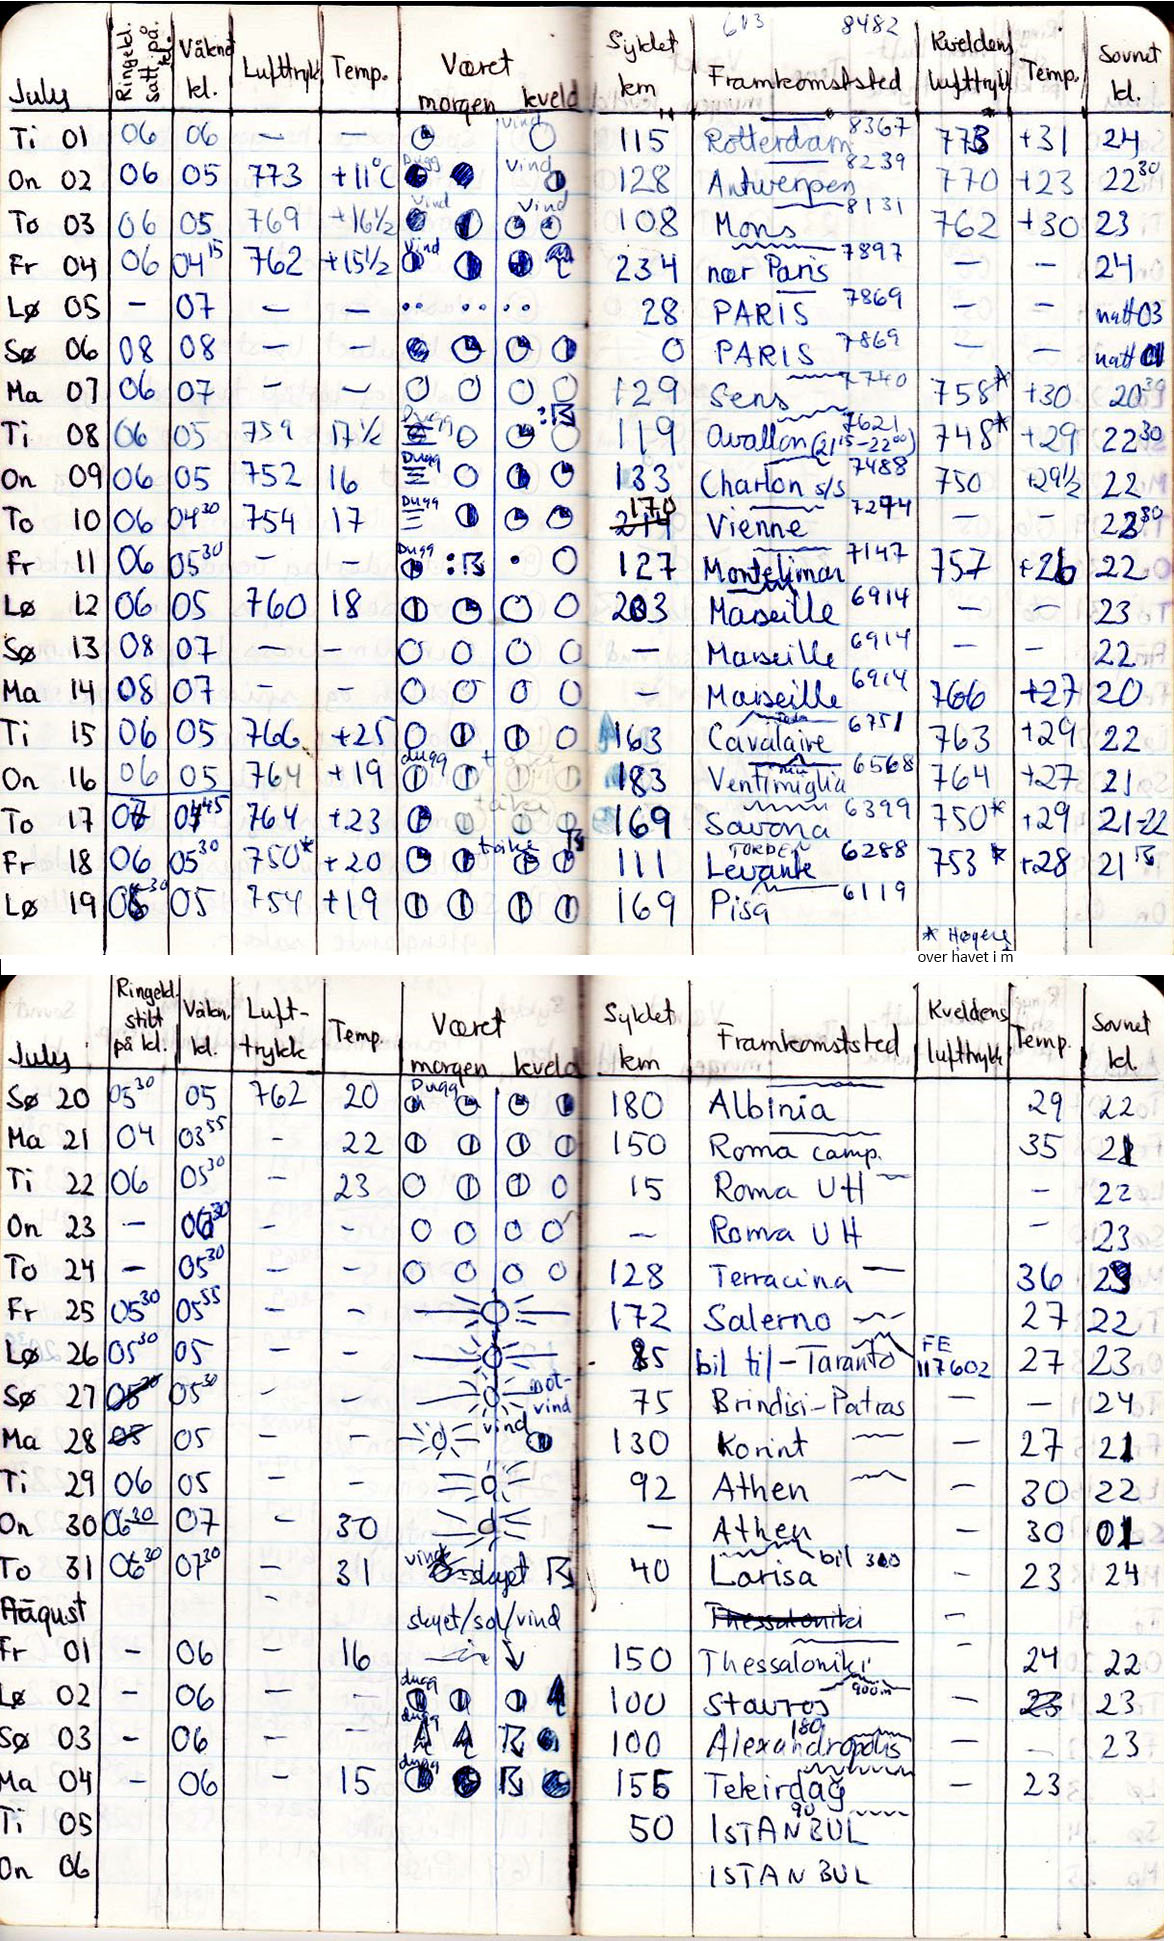 July Ringekl. satt på. kl. Våknet kl. Lufttrykk Temp. Været morgen kveld Syklet km 8482 Framkomststed Kveldens lufttrykk Temp. Sovnet kl.
Ti 01 06 06 — — Vind 115 Rotterdam 8367 773 +31 24
On 02 06 05 773 +11°C Dugg Vind 128 Antwerpen 8239 770 +23 22³⁰
To 03 06 05 769 +16½ Vind Vind 108 Mons 8131 762 +30 23
Fr 04 06 04¹⁵ 762 +15½ Vind 234 nær Paris 7897 — — 24
Lø 05 — 07 — — 28 PARIS 7869 — — natt 03
Sø 06 08 08 — — 0 PARIS 7869 — — natt 01
Ma 07 06 07 — — 129 Sens 7740 758* +30 20³⁰
Ti 08 06 05 759 17½ Dugg 119 Avallon (21¹⁵–22⁰⁰) 7621 748* +29 22³⁰
On 09 06 05 752 16 Dugg 133 Charlon s/s 7488 750 +29½ 22
To 10 06 04³⁰ 754 17 Dugg 170 214 Vienne 7274 22³⁰
Fr 11 06 05³⁰ — — Dugg 127 Montelimar 7147 757 +26 22
Lø 12 06 05 760 18 203 Marseille 6914 — — 23
Sø 13 08 07 — — — Marseille 6914 — — 22
Ma 14 08 07 — — — Marseille 6914 766 +27 20
Ti 15 06 05 766 +25 163 Cavalaire 6751 763 +29 22
On 16 06 05 764 +19 dugg 183 Ventimiglia 6568 764 +27 21
To 17 07 04⁴⁵ 764 +23 tåke 169 Savona 6399 750* +29 21-22
Fr 18 06 05³⁰ 750* +20 tåke 111 TORDEN Levante 6288 753* +28 21¹⁵
Lø 19 05³⁰ 05 754 +19 169 Pisa 6119
* Høyere
over havet i m
July Ringekl. stilt på kl. Våkn. kl. Luft-trykk Temp. Været morgen kveld Syklet km Framkomststed Kveldens lufttrykk Temp. Sovnet kl.
Sø 20 05³⁰ 05 762 20 Dugg 180 Albinia 29 22
Ma 21 04 03⁵⁵ - 22 150 Roma camp. 35 21
Ti 22 06 05³⁰ - 23 15 Roma UH — 22
On 23 — 06³⁰ - - — Roma UH — 23
To 24 — 05³⁰ - - 128 Terracina 36 23
Fr 25 05³⁰ 05⁵⁵ - - 172 Salerno 27 22
Lø 26 05³⁰ 05 - - 85 bil til - Taranto FE 117602 27 23
Sø 27 05³⁰ 05³⁰ - - mot-vind 75 Brindisi-Patras — — 24
Ma 28 05 05 - - vind 130 Korint — 27 21
Ti 29 06 05 - - 92 Athen — 30 22
On 30 06³⁰ 07 - 30 — Athen — 30 01
To 31 06³⁰ 07³⁰ - 31 vind 40 Larisa bil 300 — 23 24
August - skyet/sol/vind Thessaloniki —
Fr 01 - 06 - 16 150 Thessaloniki - 24 22
Lø 02 - 06 - - dugg 100 Stavros 900m — 23 23
Sø 03 - 06 - dugg 100 Alexandropolis 180 — - 23
Ma 04 - 06 - 15 dugg 155 Tekirdağ — 23
Ti 05 50 90 ISTANBUL
On 06 ISTANBUL